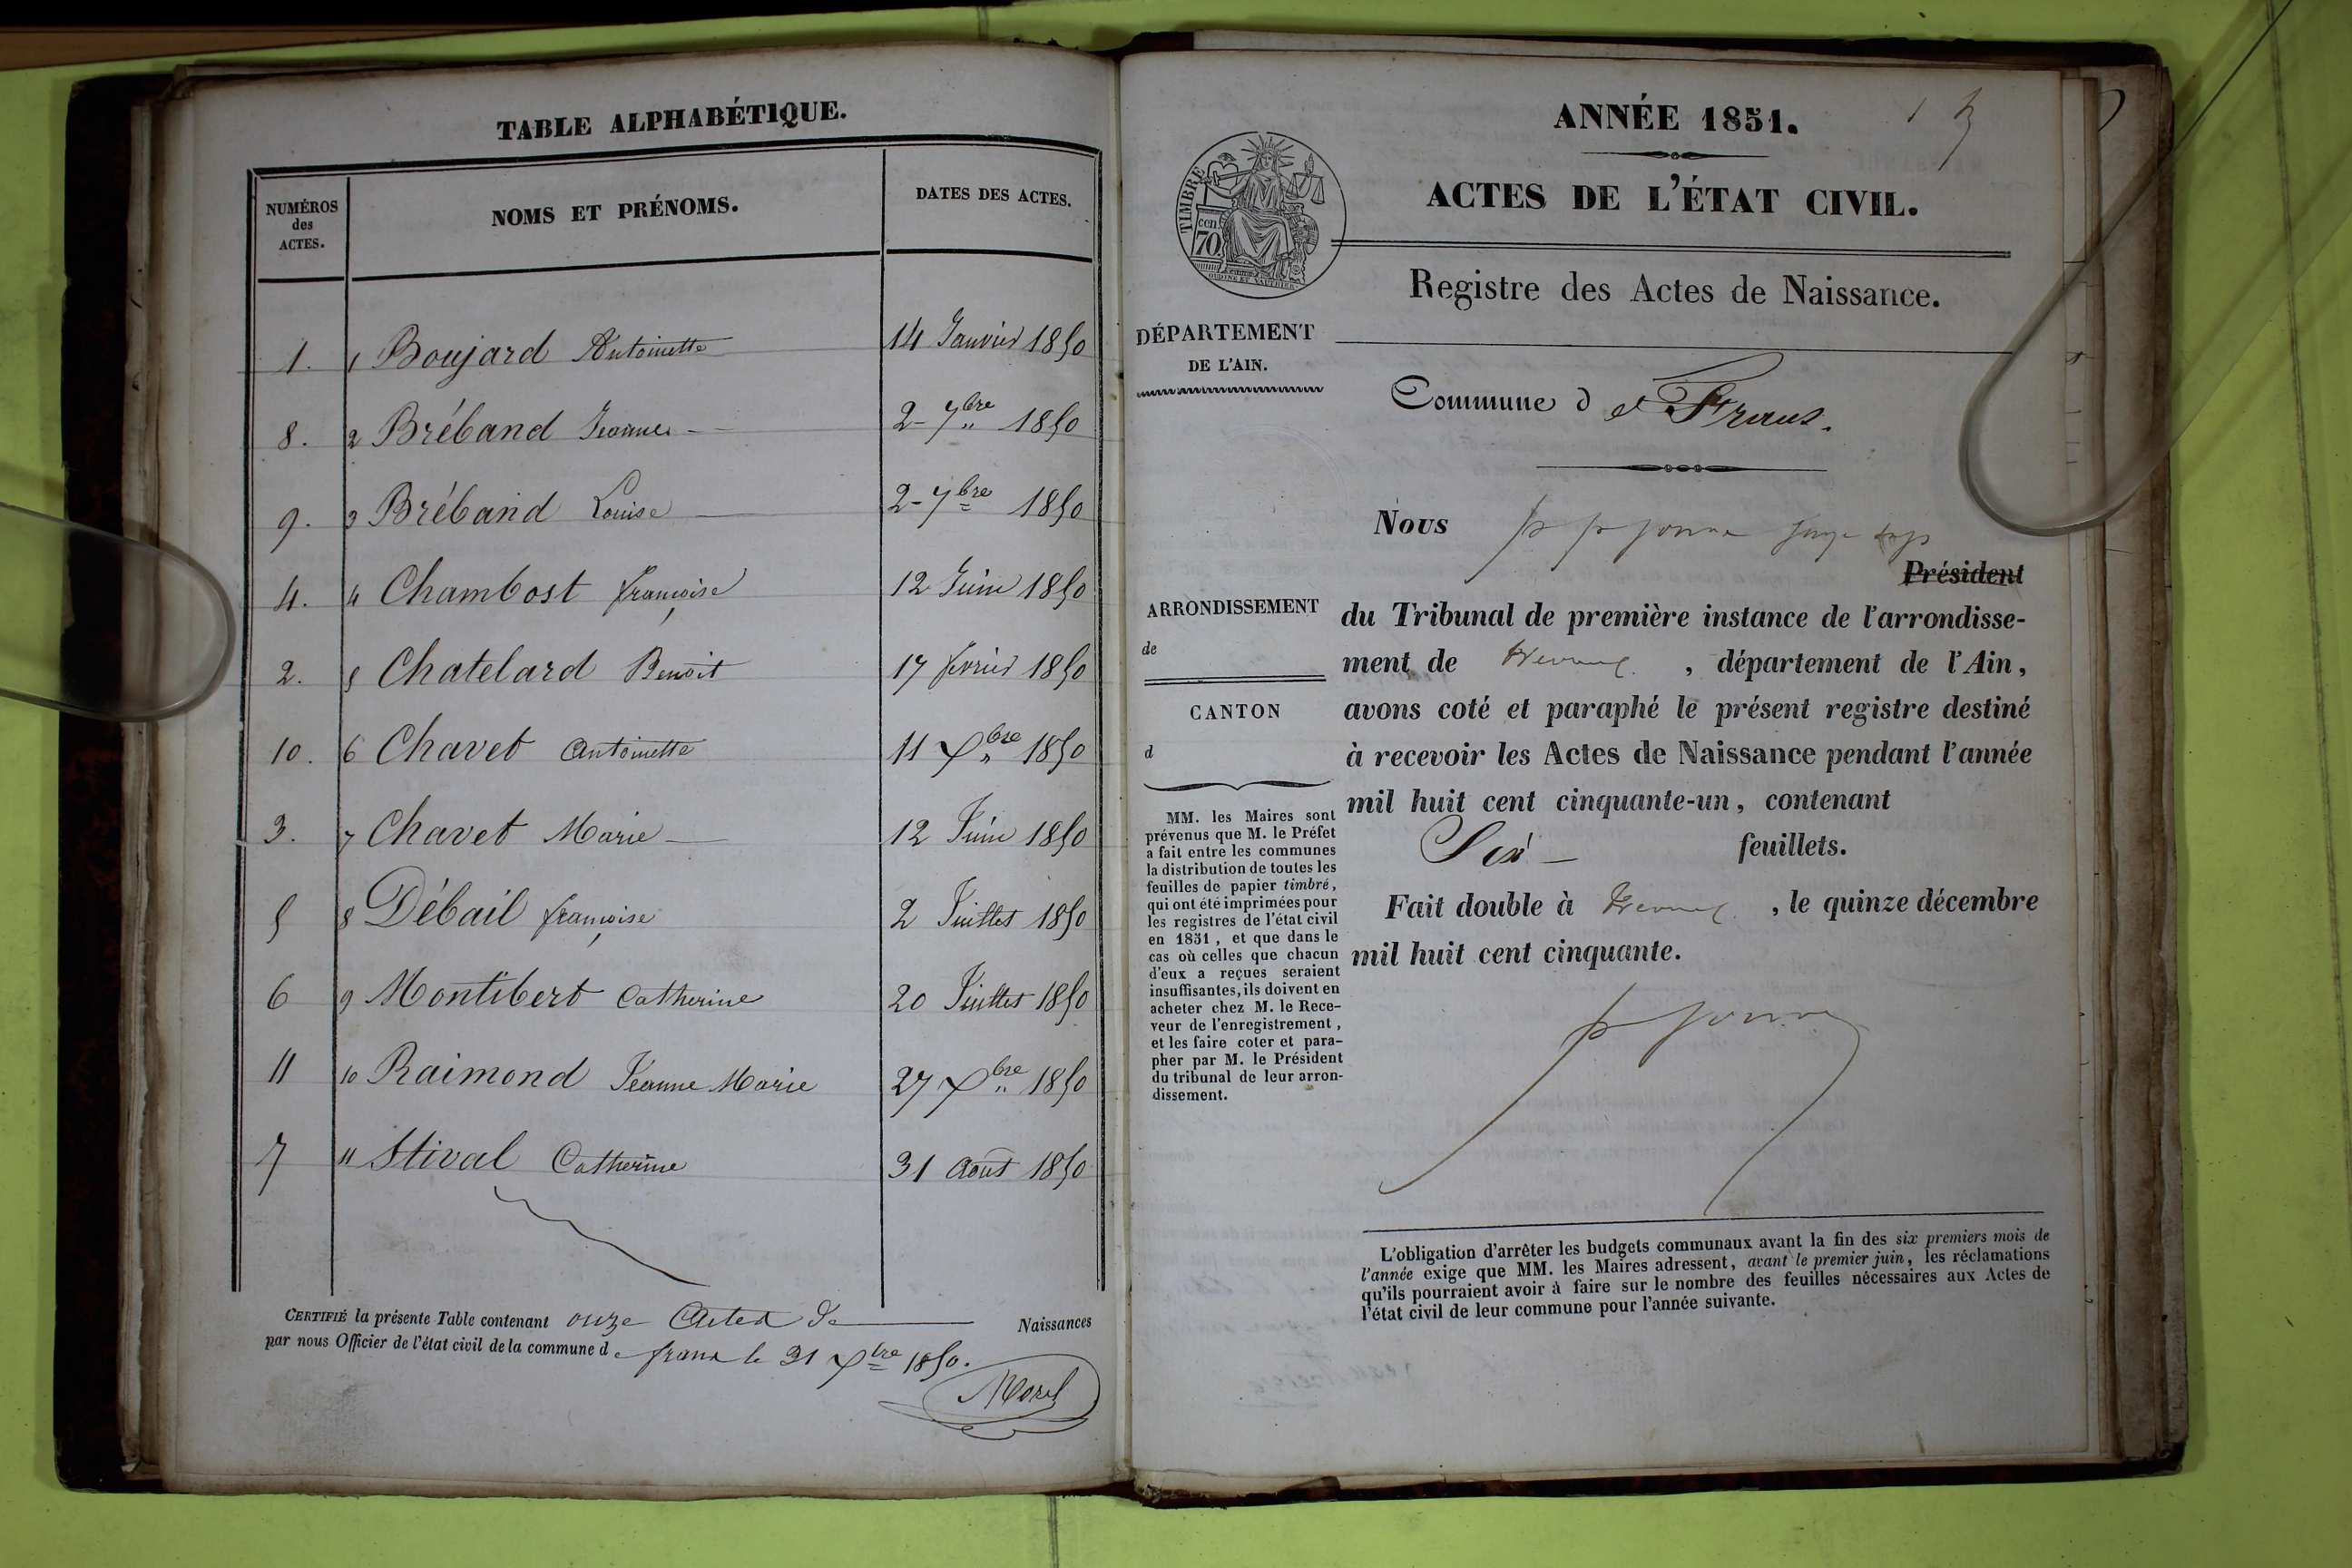 TABLE ALPHABÉTIQUE.
NUMÉROS
des
ACTES.
NOMS ET PRÉNOMS.
DATES DES ACTES.
1. 1 Boujard Antoinette 14 Janvier 1850
8. 2 Bréband Jeanne 2 - 7bre 1850
9. 3 Bréband Louise 2 - 7bre 1850
4. 4 Chambost françoise 12 Juin 1850
2. 5 Chatelard Benoit 17 fevrier 1850
10. 6 Chavet Antoinette 11 Xbre 1850
3. 7 Chavet Marie 12 Juin 1850
5 8 Débail françoise 2 Juillet 1850
6 9 Montibert Catherine 20 Juillet 1850
11 10 Raimond Jeanne Marie 27 Xbre 1850
7 11 Stival Catherine 31 Aout 1850
CERTIFIÉ la présente Table contenant onze Actes de Naissances
par nous Officier de l'état civil de la commune de frans le 31 Xbre 1850.
Morel
ANNÉE 1851.
1
ACTES DE L'ÉTAT CIVIL.
TIMBRE
70 cen
Registre des Actes de Naissance.
DÉPARTEMENT
DE L'AIN.
Commune de Frans.
ARRONDISSEMENT
de
CANTON
d
MM. les Maires sont
prévenus que M. le Préfet
a fait entre les communes
la distribution de toutes les
feuilles de papier timbré,
qui ont été imprimées pour
les registres de l'état civil
en 1851, et que dans le
cas où celles que chacun
d'eux a reçues seraient
insuffisantes, ils doivent en
acheter chez M. le Rece-
veur de l'enregistrement,
et les faire coter et para-
pher par M. le Président
du tribunal de leur arron-
dissement.
Nous
Président
du Tribunal de première instance de l'arrondisse-
ment de Trevoux, département de l'Ain,
avons coté et paraphé le présent registre destiné
à recevoir les Actes de Naissance pendant l'année
mil huit cent cinquante-un, contenant
Six feuillets.
Fait double à Trevoux, le quinze décembre
mil huit cent cinquante.
L'obligation d'arrêter les budgets communaux avant la fin des six premiers mois de
l'année exige que MM. les Maires adressent, avant le premier juin, les réclamations
qu'ils pourraient avoir à faire sur le nombre des feuilles nécessaires aux Actes de
l'état civil de leur commune pour l'année suivante.